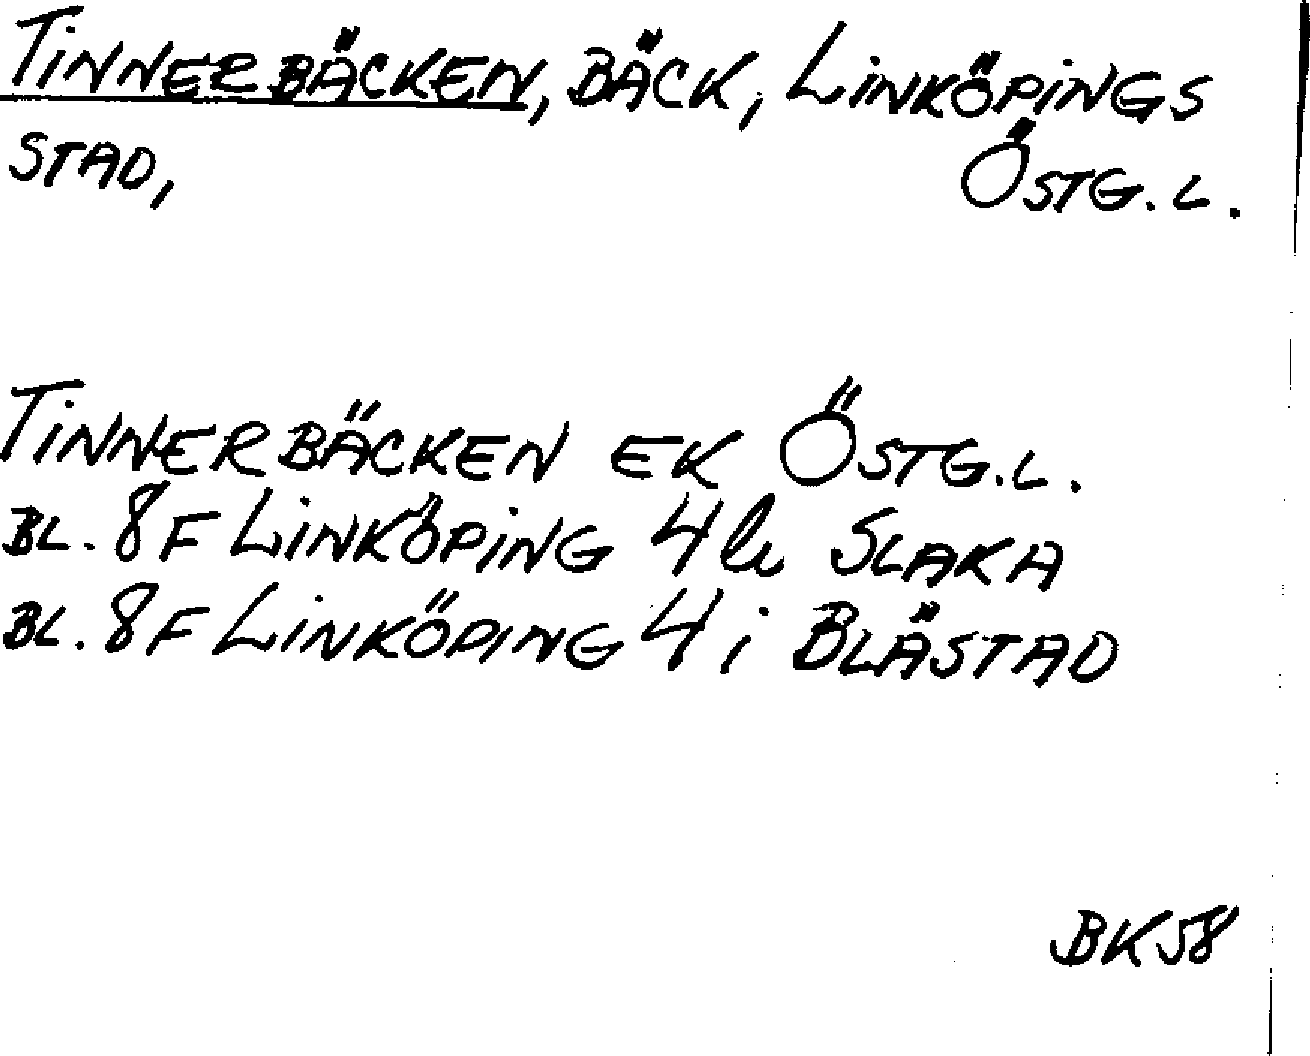 TINNERBÄCKEN, BÄCK, LINKÖPINGS
STAD, ÖSTG. L.
TINNERBÄCKEN EK ÖSTG. L.
BL. 8F LINKÖPING 4h SLAKA
BL. 8F LINKÖPING 4i BLÄSTAD
BK58